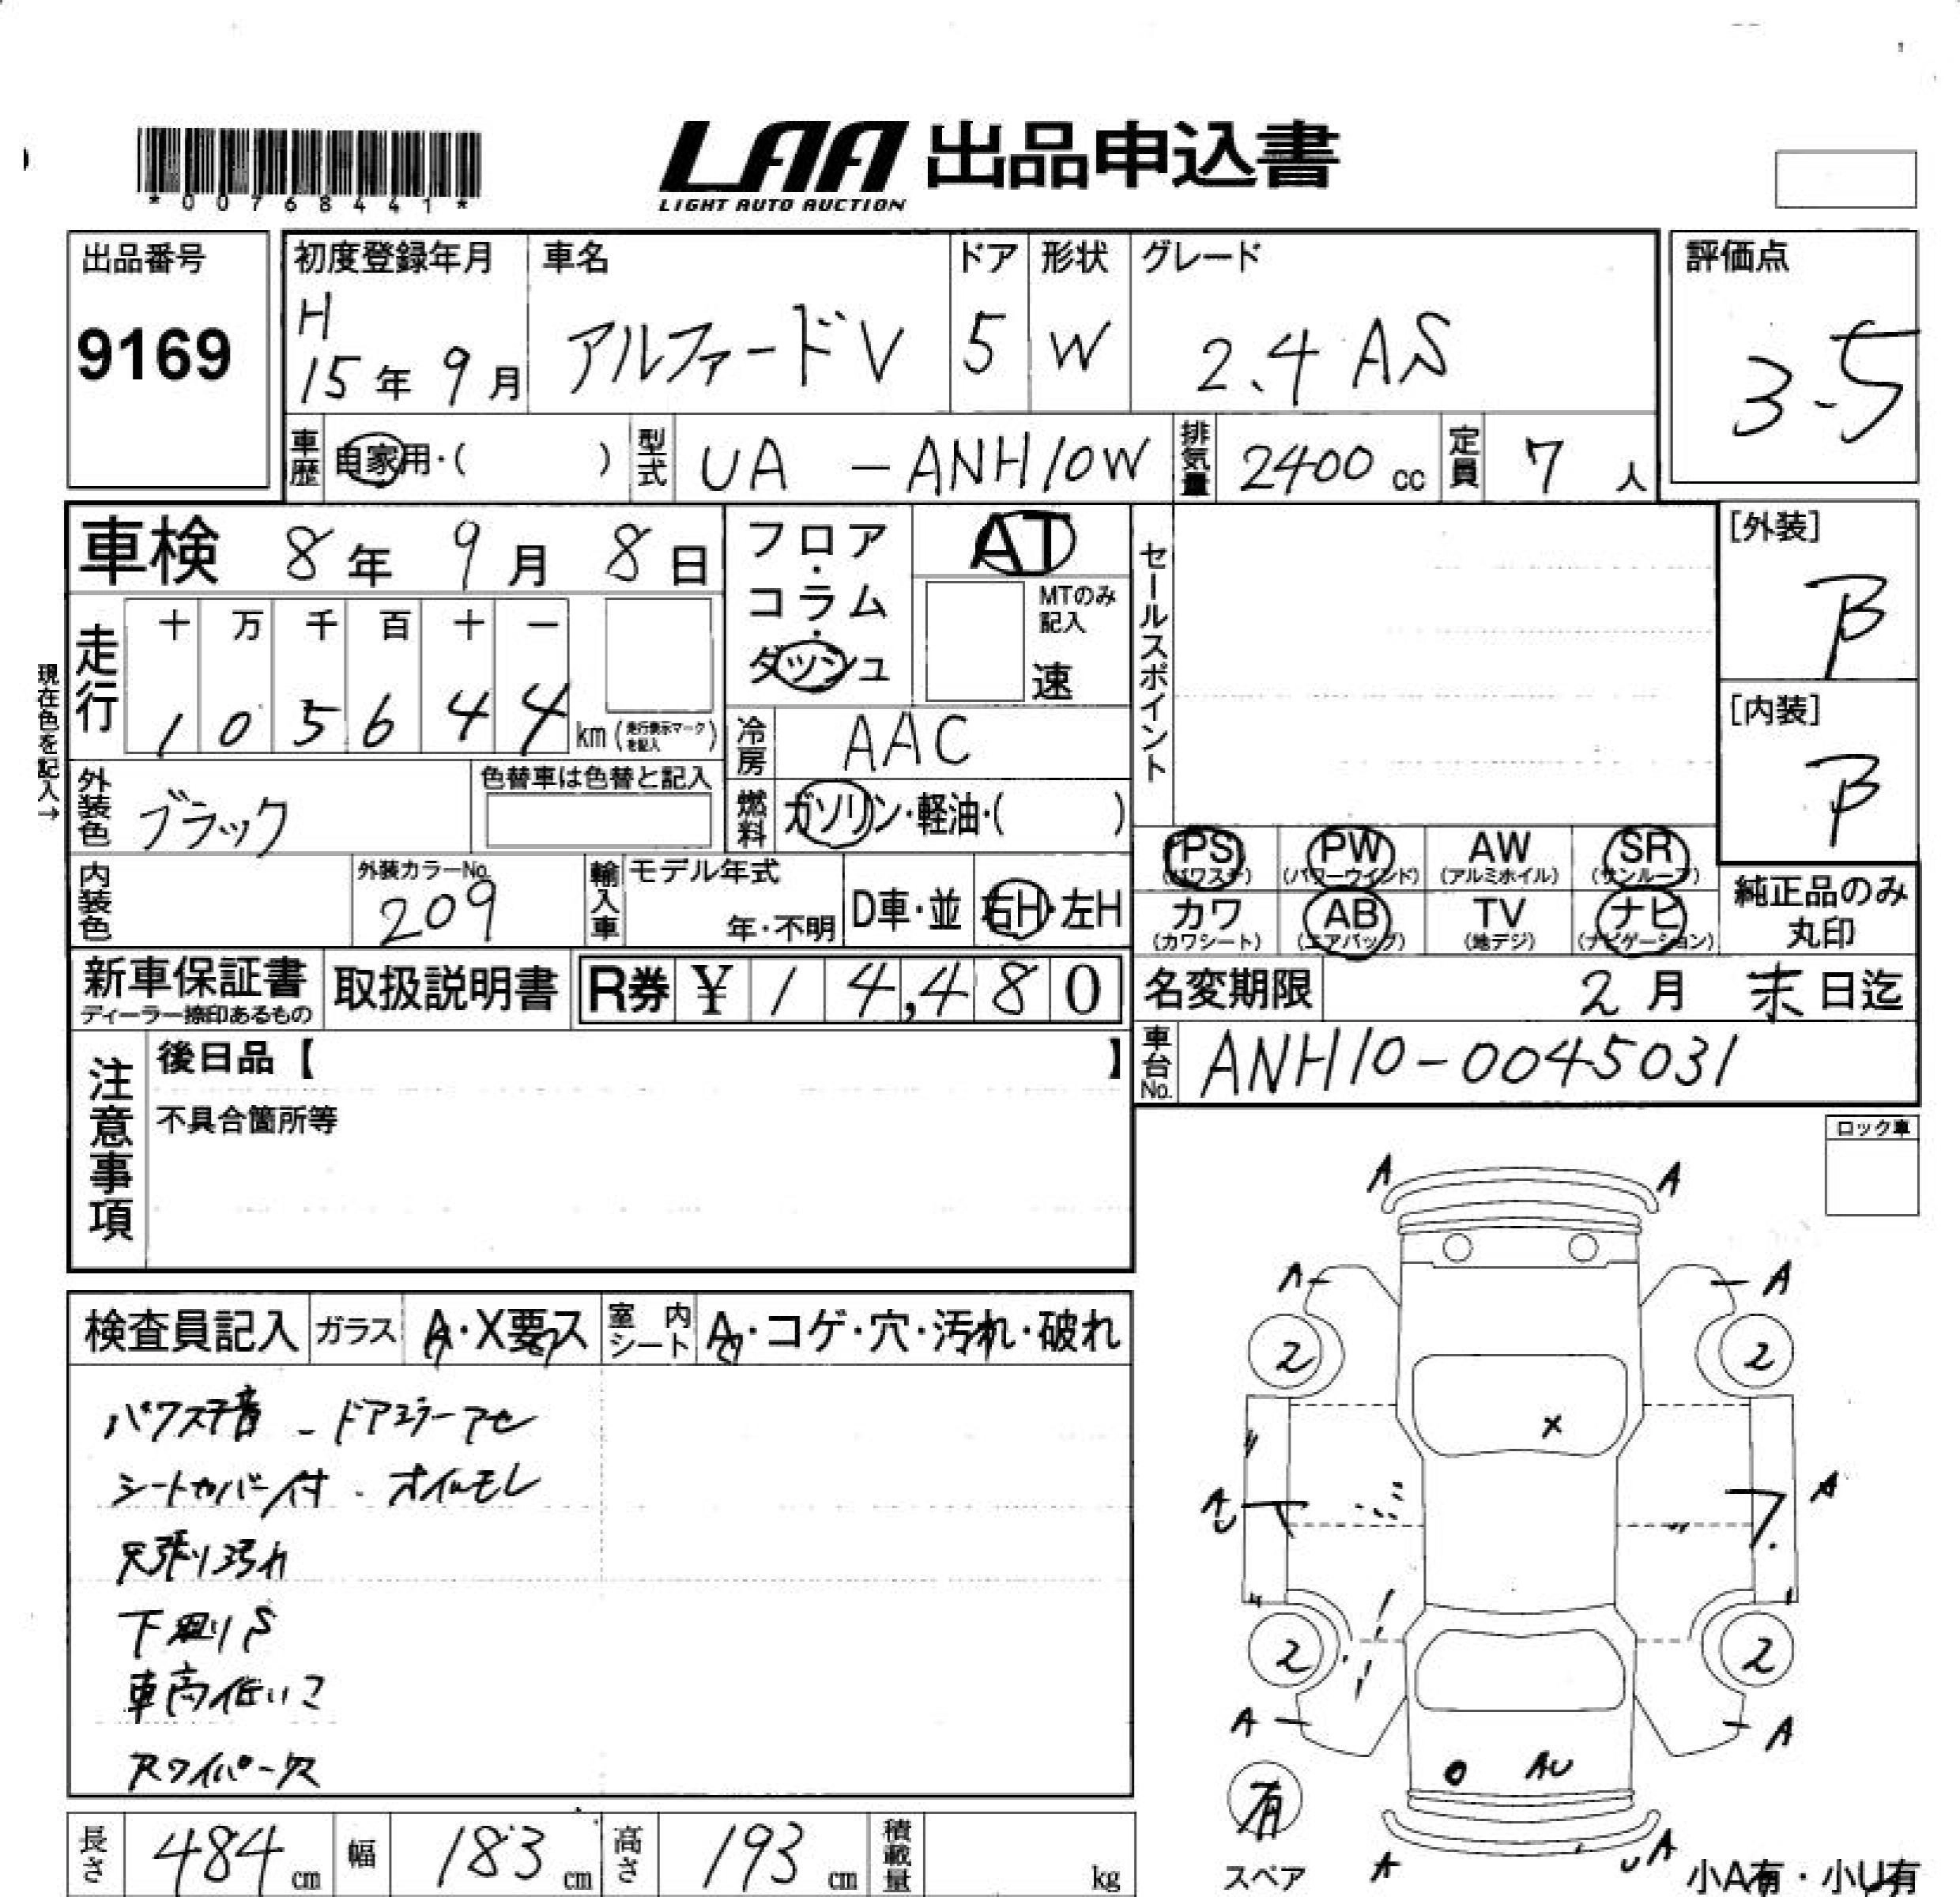 *00768441*
LAA 出品申込書
LIGHT AUTO AUCTION
出品番号
9169
初度登録年月
H
15年 9月
車名
アルファードV
ドア
5
形状
W
グレード
2.4 AS
評価点
3.5
車歴 自家用・( )
型式 UA -ANH10W
排気量 2400 cc
定員 7 人
車検 8年 9月 8日
フロア・コラム・ダッシュ
AT
MTのみ記入
速
セールスポイント
[外装]
B
[内装]
B
現在色を記入→
走行
十 万 千 百 十 一
1 0 5 6 4 4 km (走行表示マークを記入)
冷房 AAC
外装色 ブラック
色替車は色替と記入
燃料 ガソリン・軽油・( )
PS (パワステ)
PW (パワーウインド)
AW (アルミホイル)
SR (サンルーフ)
カワ (カワシート)
AB (エアバッグ)
TV (地デジ)
ナビ (ナビゲーション)
純正品のみ丸印
内装色
外装カラーNo.
209
輸入車 モデル年式
年・不明
D車・並
右H・左H
新車保証書
ディーラー捺印あるもの
取扱説明書
R券 ¥ 1 4,4 8 0
名変期限 2月 末日迄
車台No. ANH10-0045031
注意事項
後日品【 】
不具合箇所等
ロック車
検査員記入 ガラス A・X要ス 室内シート A・コゲ・穴・汚れ・破れ
パワステ音 - ドアミラーアセ
シートカバー付 . オイルモレ
天張り汚れ
下廻りS
車高低い
Rワイパー欠
A A
A A
2 2
X
A
A
2 2
A A
AU
有
スペア
A UA
小A有・小U有
長さ 484 cm
幅 183 cm
高さ 193 cm
積載量 kg